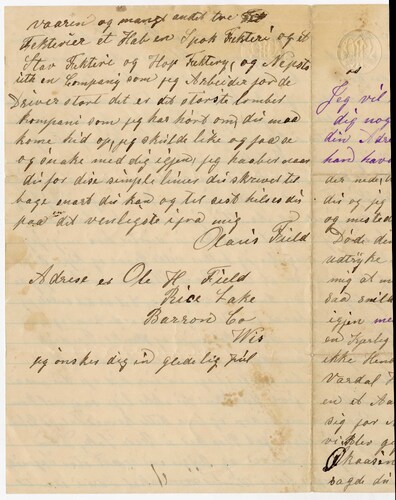 vaaren og mangt andet tre
Fektirier et Hab en Spok Fekteri og et
Stav Fekteri og Hop Fektery, og Nepste
en Company som jeg Arbeider for de
Driver stort det er det störste lomber
kompani som jeg har hört om, du maa
kome hid op, jeg skulde like og faa se
og snake med dig igjen, jeg haaber naar
du for dise simple lines du skrever til
bage snart du kan og til sist hilses du
paa det venligste ifra mig
Olaus Field
Adrese er Ole H Field
Rice Lake
Barron Co
Wis
jeg önsker dig en gledelig Jul
Jeg vil
dig nog
din Adre
haand hava
der nede,
du og j
og mistede
Döde de
udtryke
mig at m
saa snild
igjen me
en Kärlig
ikke Hend
Vardal H
en et Aa
sig for A
vi Blev g
sagde du